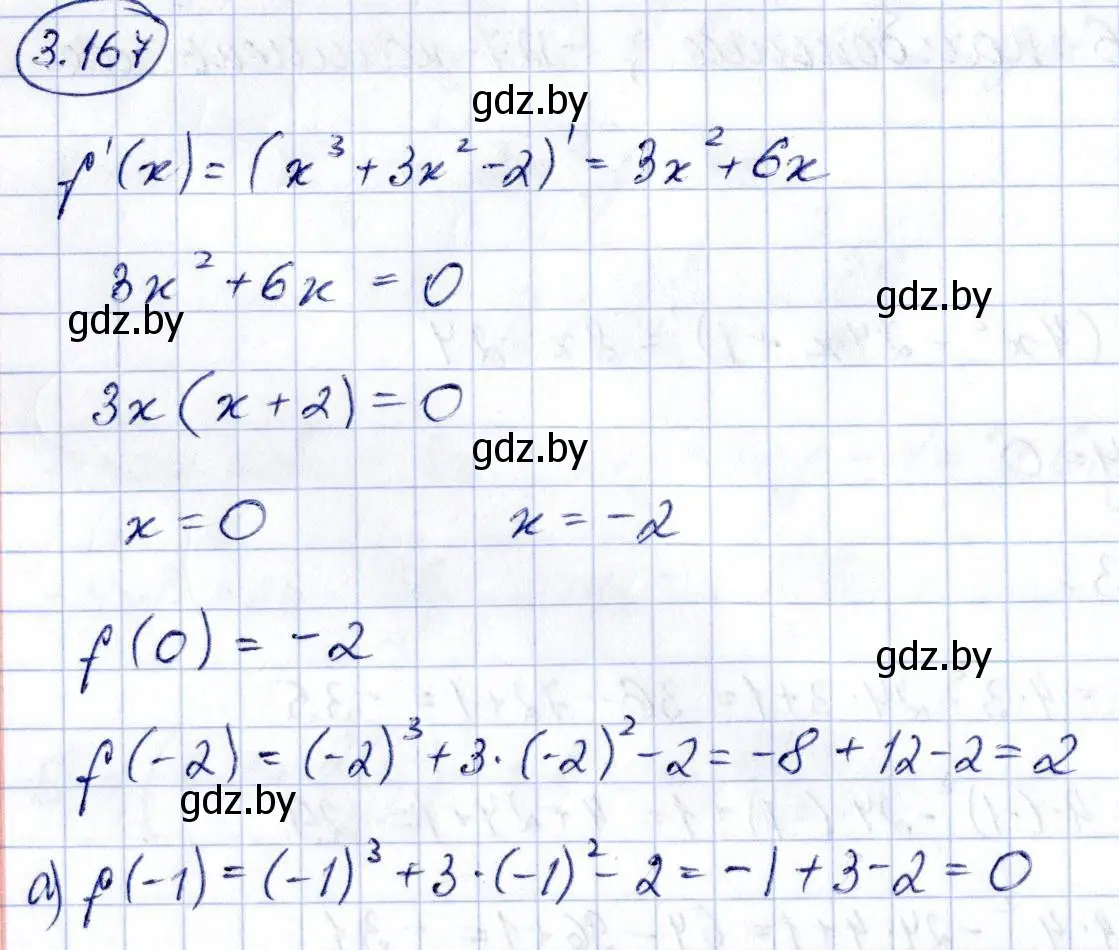 3.167
gdz.by
f'(x) = (x³ + 3x² - 2)' = 3x² + 6x
3x² + 6x = 0
gdz.by
gdz.by
3x(x + 2) = 0
gdz.by
x = 0 x = -2
f(0) = -2
gdz.by
f(-2) = (-2)³ + 3·(-2)² - 2 = -8 + 12 - 2 = 2
gdz.by
а) f(-1) = (-1)³ + 3·(-1)² - 2 = -1 + 3 - 2 = 0